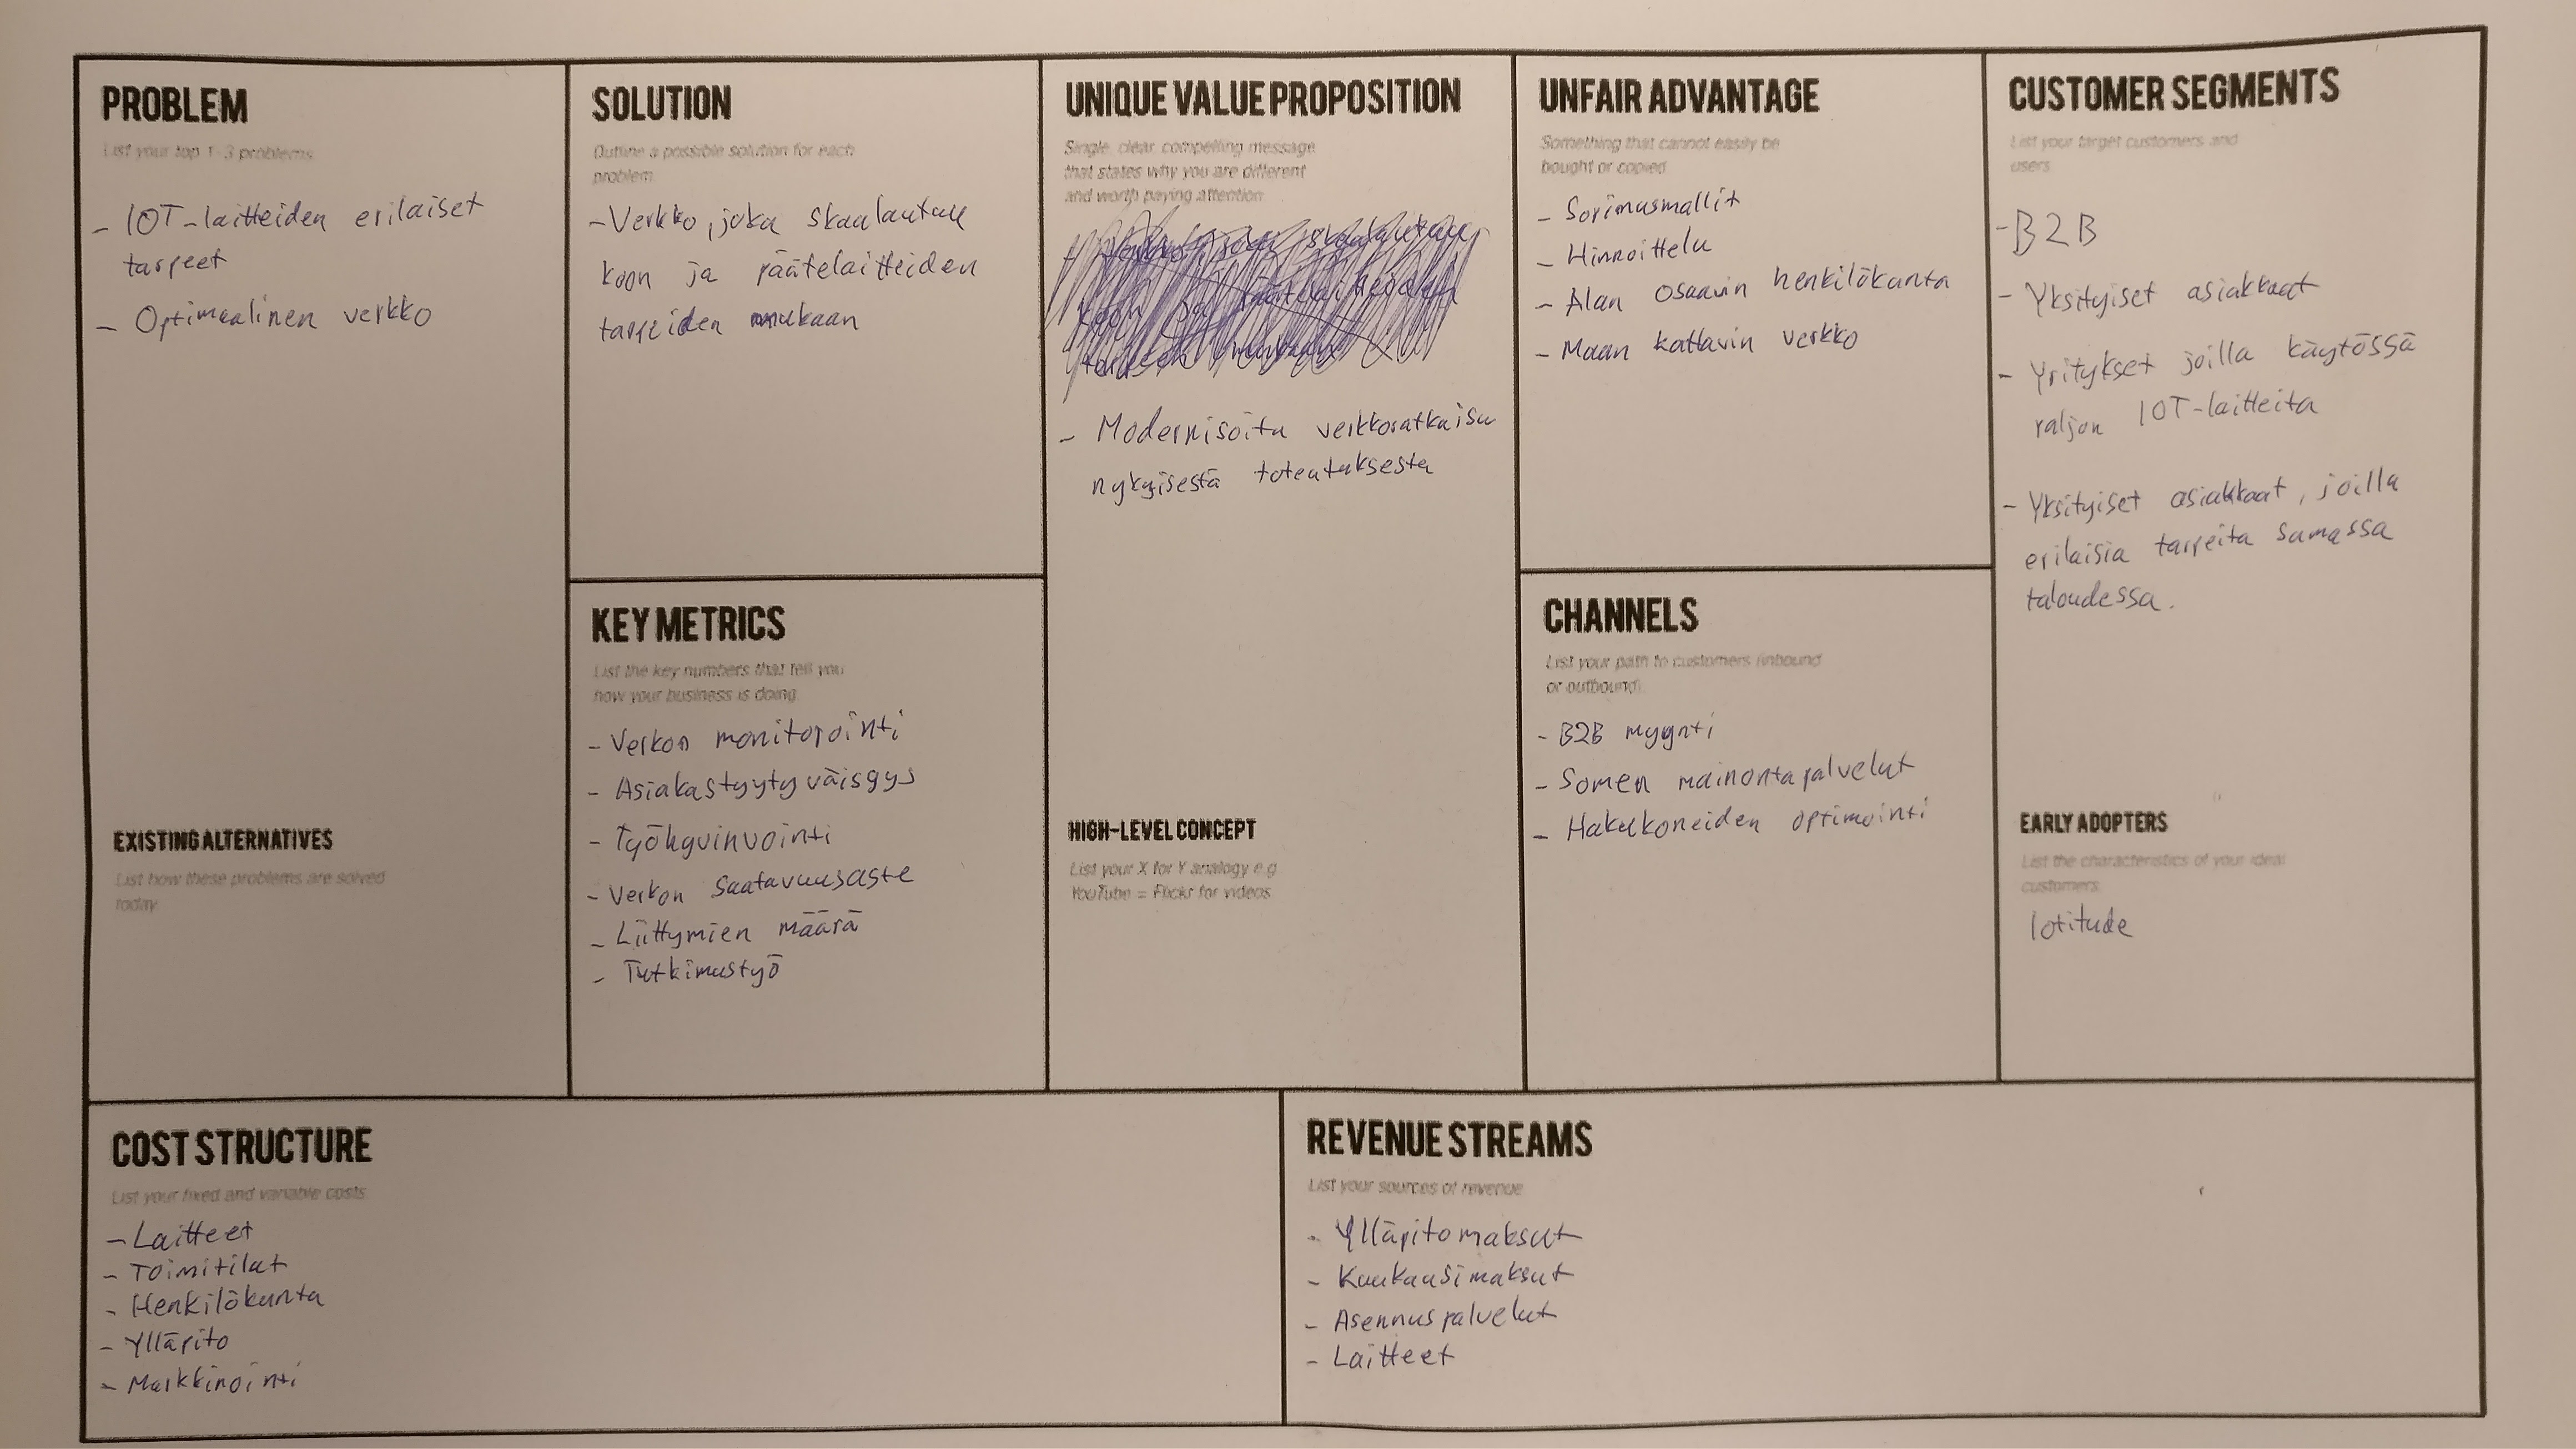 PROBLEM
List your top 1-3 problems
- IOT-laitteiden erilaiset
tarpeet
- Optimaalinen verkko
EXISTING ALTERNATIVES
List how these problems are solved
today
SOLUTION
Outline a possible solution for each
problem
- Verkko, joka skaalautuu
koon ja päätelaitteiden
tarpeiden mukaan
KEY METRICS
List the key numbers that tell you
how your business is doing
- Verkon monitorointi
- Asiakastyytyväisyys
- Työhyvinvointi
- Verkon saatavuusaste
- Liittymien määrä
- Tutkimustyö
UNIQUE VALUE PROPOSITION
Single, clear compelling message
that states why you are different
and worth paying attention
- Modernisoitu verkkoratkaisu
nykyisestä toteutuksesta
HIGH-LEVEL CONCEPT
List your X for Y analogy e.g
YouTube = Flickr for videos
UNFAIR ADVANTAGE
Something that cannot easily be
bought or copied
- Sopimusmallit
- Hinnoittelu
- Alan osaavin henkilökunta
- Maan kattavin verkko
CHANNELS
List your path to customers (inbound
or outbound)
- B2B myynti
- Somen mainontapalvelut
- Hakukoneiden optimointi
CUSTOMER SEGMENTS
List your target customers and
users
- B2B
- Yksityiset asiakkaat
- Yritykset joilla käytössä
paljon IOT-laitteita
- Yksityiset asiakkaat, joilla
erilaisia tarpeita samassa
taloudessa.
EARLY ADOPTERS
List the characteristics of your ideal
customers
Iotitude
COST STRUCTURE
List your fixed and variable costs
- Laitteet
- Toimitilat
- Henkilökunta
- Ylläpito
- Markkinointi
REVENUE STREAMS
List your sources of revenue
- Ylläpitomaksut
- Kuukausimaksut
- Asennuspalvelut
- Laitteet